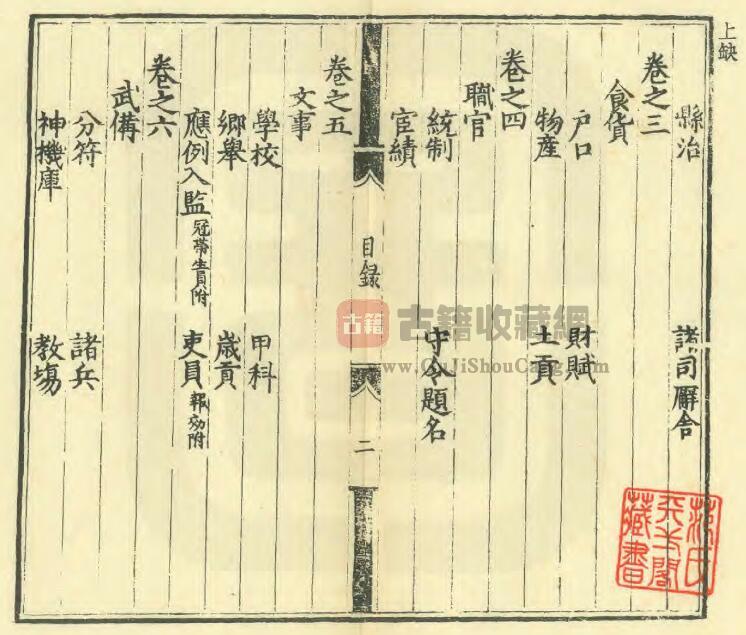 上缺
縣治 諸司廨舍
卷之三
食貨
户口 財賦
物產 土貢
卷之四
職官
統制 守令題名
宦績
目録
二
卷之五
文事
學校 甲科
鄉舉 歲貢
應例入監冠帶生員附 吏員報効附
卷之六
武備
分符 諸兵
神機庫 教場
古籍
古籍收藏網
www.GuJiShouCang.com
范氏
天一閣
藏書